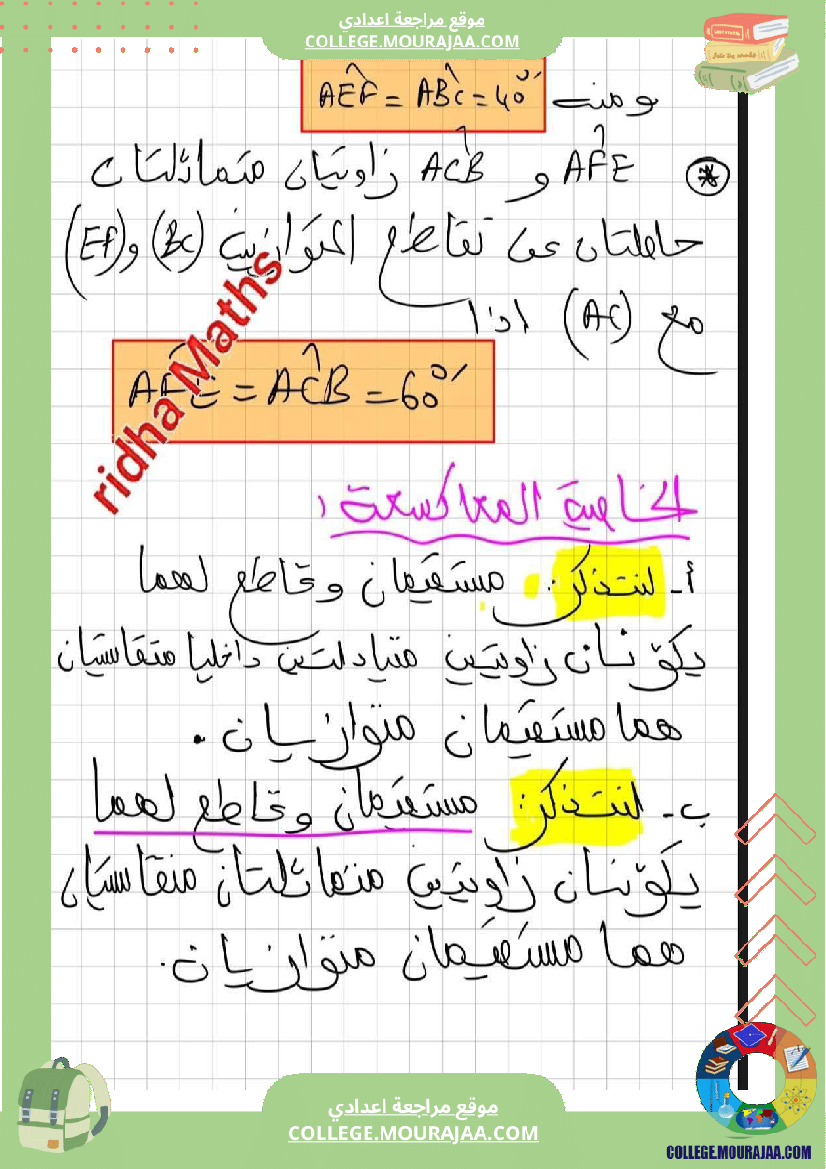 موقع مراجعة اعدادي
COLLEGE.MOURAJAA.COM
ومنه AÊF = AB̂C = 40°
⊛ AF̂E و AĈB زاويتان متماثلتان
حاصلتان عن تقاطع المتوازيين (BC) و (EF)
مع (AC) اذا
AF̂E = AĈB = 60°
ridha Maths
الخاصية المعاكسة:
أ- لنتذكر: مستقيمان وقاطع لهما
يكوّنان زاويتين متبادلتين داخليا متقايستان
هما مستقيمان متوازيان.
ب- لنتذكر: مستقيمان وقاطع لهما
يكوّنان زاويتين متماثلتان متقايستان
هما مستقيمان متوازيان.
موقع مراجعة اعدادي
COLLEGE.MOURAJAA.COM
COLLEGE.MOURAJAA.COM